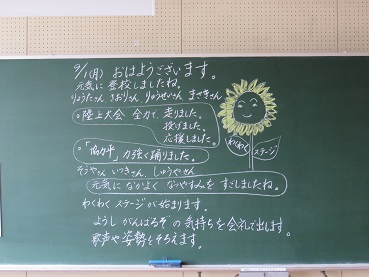 9/1(月) おはようございます。
元気に登校しましたね。
りょうたさん きおりさん りゅうせいさん まさきさん
○陸上大会 全力で、走りました。
投げました。
応援しました。
○「協力平」力強く踊りました。
そうやさん いつきさん しゅうやさん
元気になかよく なつやすみを すごしましたね。
わくわくステージが始まります。
ようし がんばるぞの気持ちを会礼で出します。
歌声や姿勢をそろえます。
わくわく ステージ